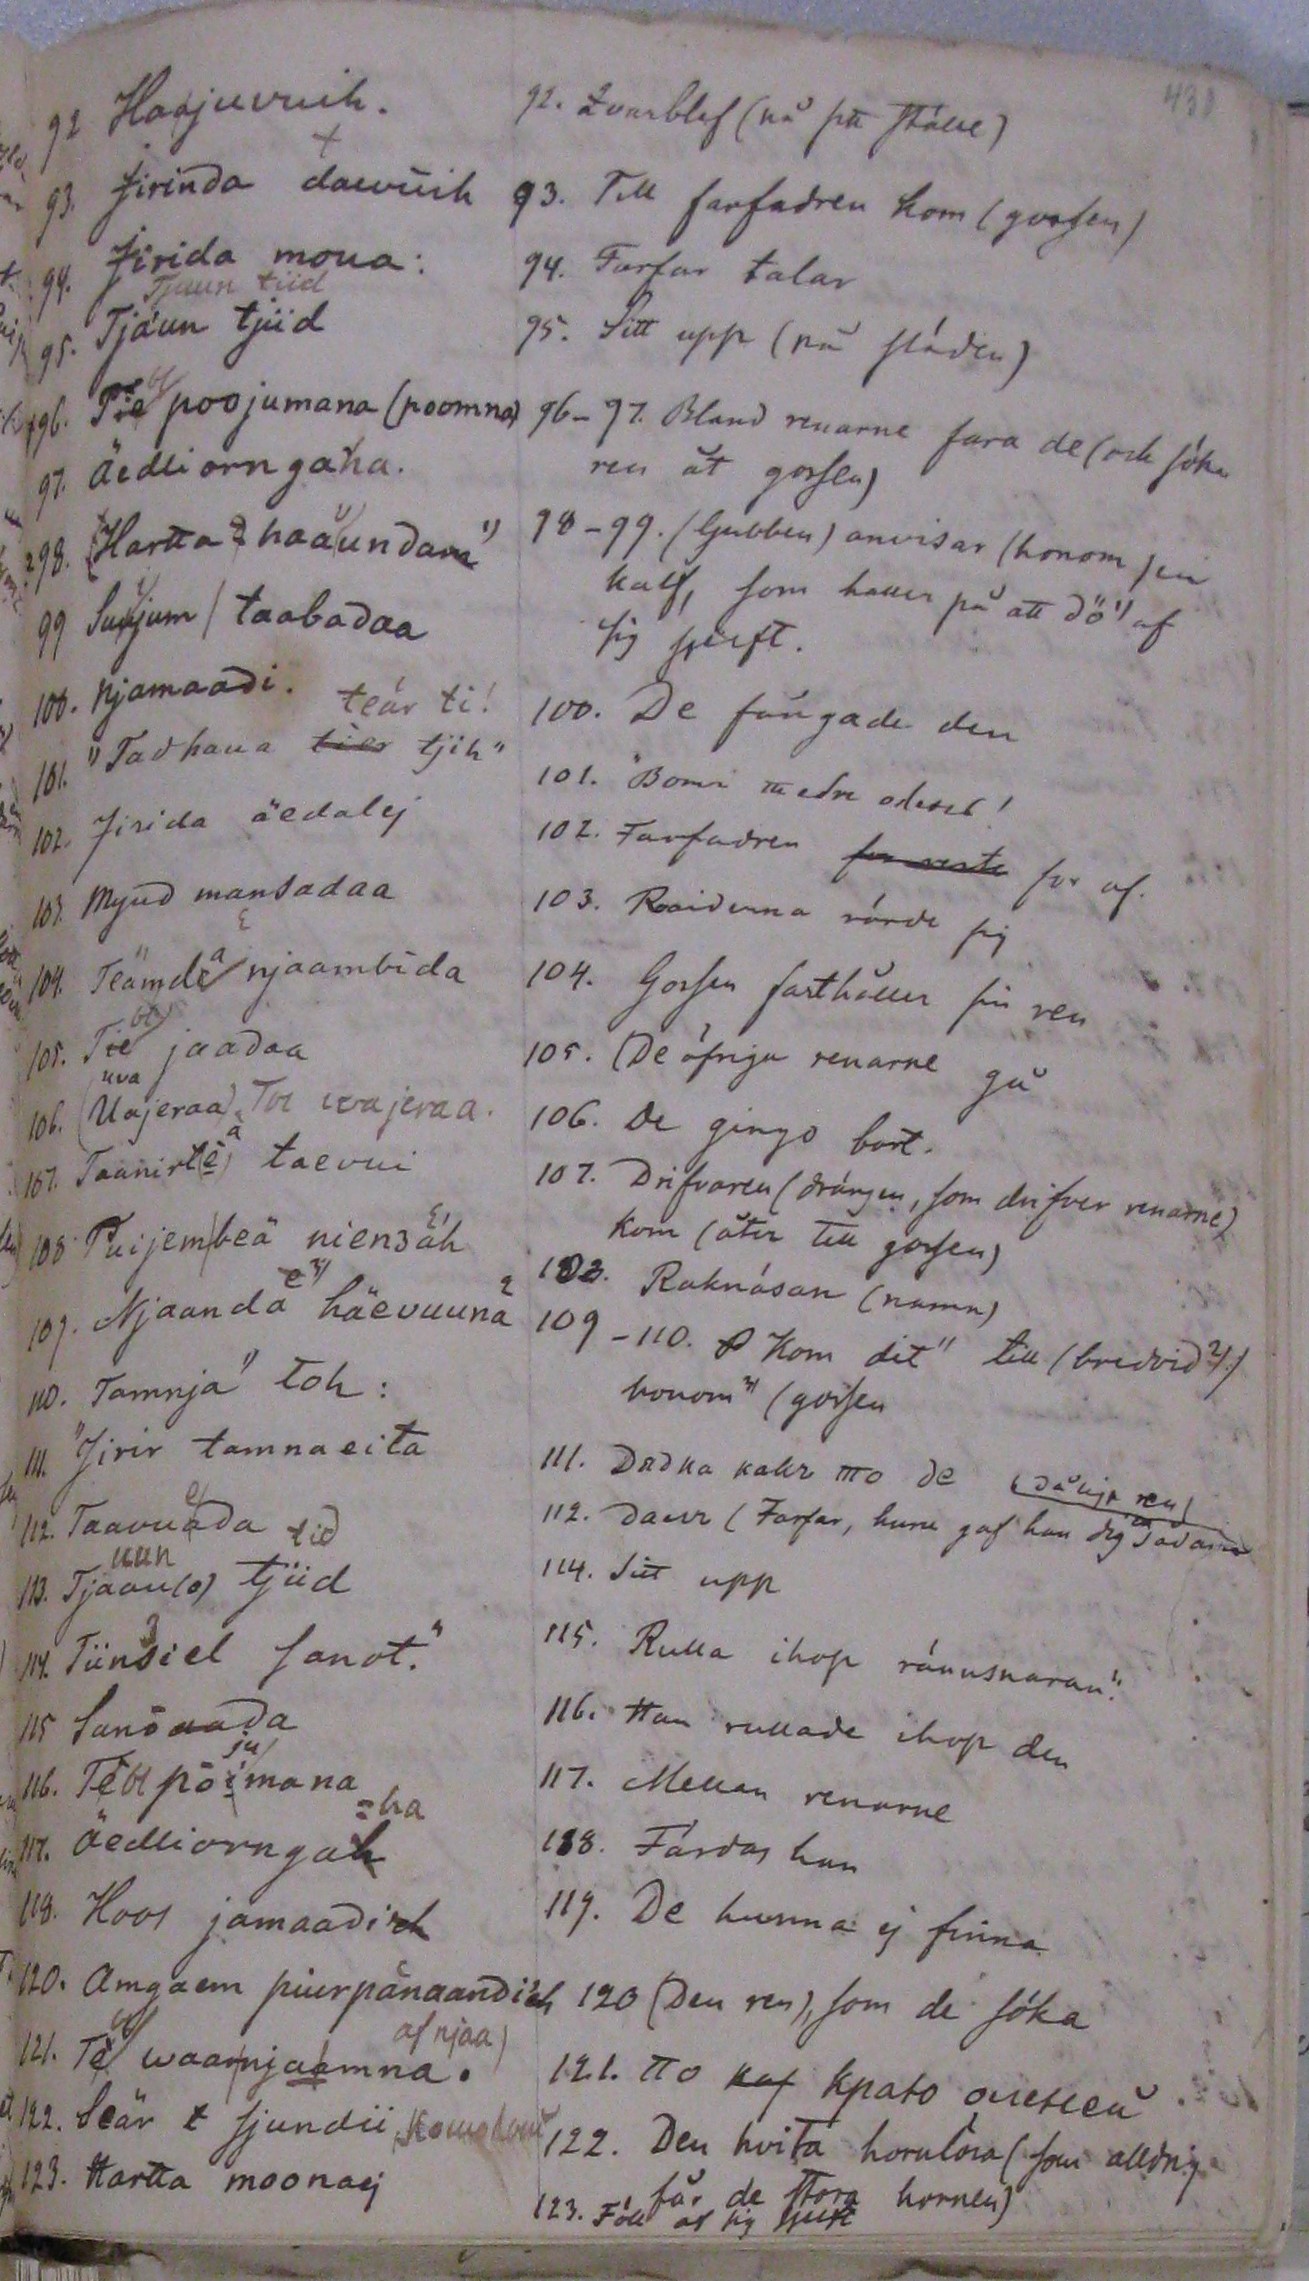 438
92 Haajuvuih.
93. Jirinda daevuih
94. Jirida moua:
Tjaun tiid
95. Tjaun tjiid
96. Tie poojumana (poomna)
97. äedliorngaha.
98. Hartta haaundam
99 Suujum / taabadaa
100. njamaadi.
teár ti!
101. "Tadhaua tier tjih"
102. Jirida äedalej
103. Myud mansadaa
104. Teämde njaambida
105. Tie jaadaa
uva
106. (Uajeraa). Toe wajeraa.
107. Taanirte taevui
108. Puijembeä nienzäh
109. Njaanda häevuuna
110. Tamnja toh:
111. "Jirir tamnaeita
112. Taavuada
uun tid
113. Tjaau(o) tjiid
114. Tiinsiel sanot."
115 Sanoaada
ju
116. Te pöimana
=ha
117. äedliorngah
118. Hoos jamaadich
120. Amgaem piurpänaandich
af njaa)
121. Te waarnjaamna.
122. Seär t sjundii
123. Hartta moonaej
92. Qvarblef (nå sitt ställe)
93. Till farfadren kom (gossen)
94. Farfar talar
95. Sitt upp (nå släden)
96–97. Bland renarne fara de (och söka
ren åt gossen)
98–99. (Gubben) anvisar (honom) en
kalf, som håller på att dö af
sig sjelft.
100. De fångade den
101. "Вотъ тебѣ олень!
102. Farfadren for af.
103. Raiderna rörde sig
104. Gossen fasthåller sin ren
105. (De öfriga renarne gå
106. De gingo bort.
107. Drifvaren (drängen, som drifver renarne)
kom (åter till gossen)
108. Raknäsan (namn)
109–110. Kom dit" till (bredvid 2/)
honom (gossen
111. Дѣдка какъ то де
112. давъ (Farfar, huru gaf han dig
114. Sitt upp
115. Rulla ihop ränusnaran".
116. Han rullade ihop den
117. Mellan renarne
118. Färdas han
119. De kunna ej finna
120 (Den ren), som de söka
121. то
122. Den hvita hornlösa (som alldrig
får de stora hornen)
123. Föll af sig sjelft